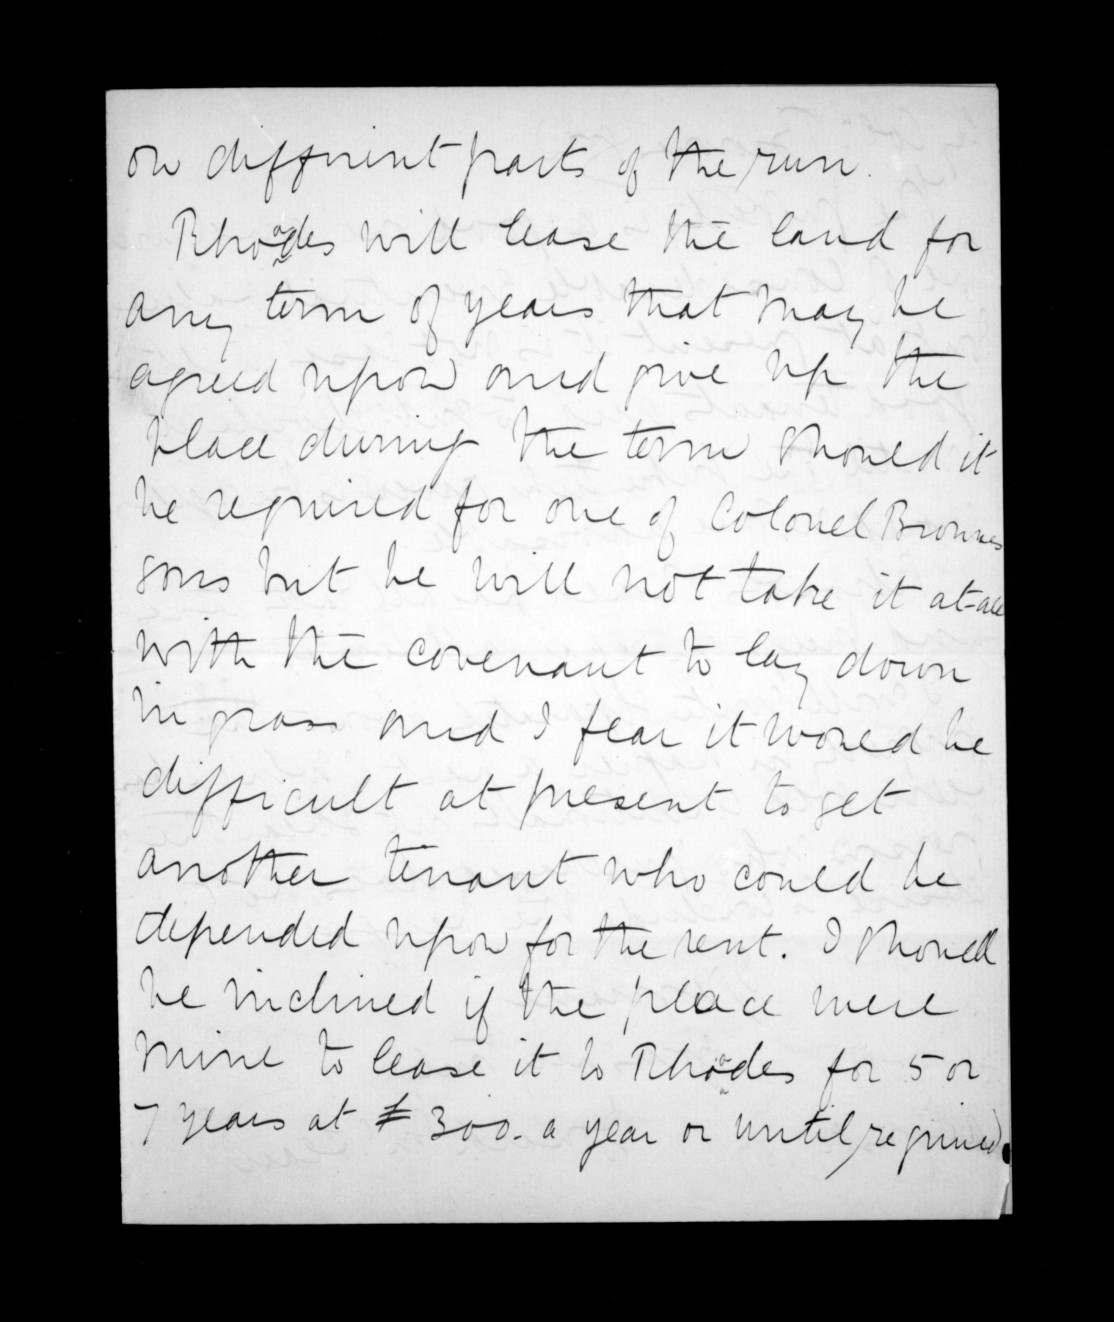 on different parts of the run.
Rhoades will lease the land for
any term of years that may be
agreed upon and give up the
place during the term should it
be required for one of Colonel Brownes
sons but he will not take it at all
with the covenant to lay down
in grass and I fear it would be
difficult at present to get
another tenant who could be
depended upon for the rent. I should
be inclined if the place were
mine to lease it to Rhoades for 5 or
7 years at £300. a year or until required